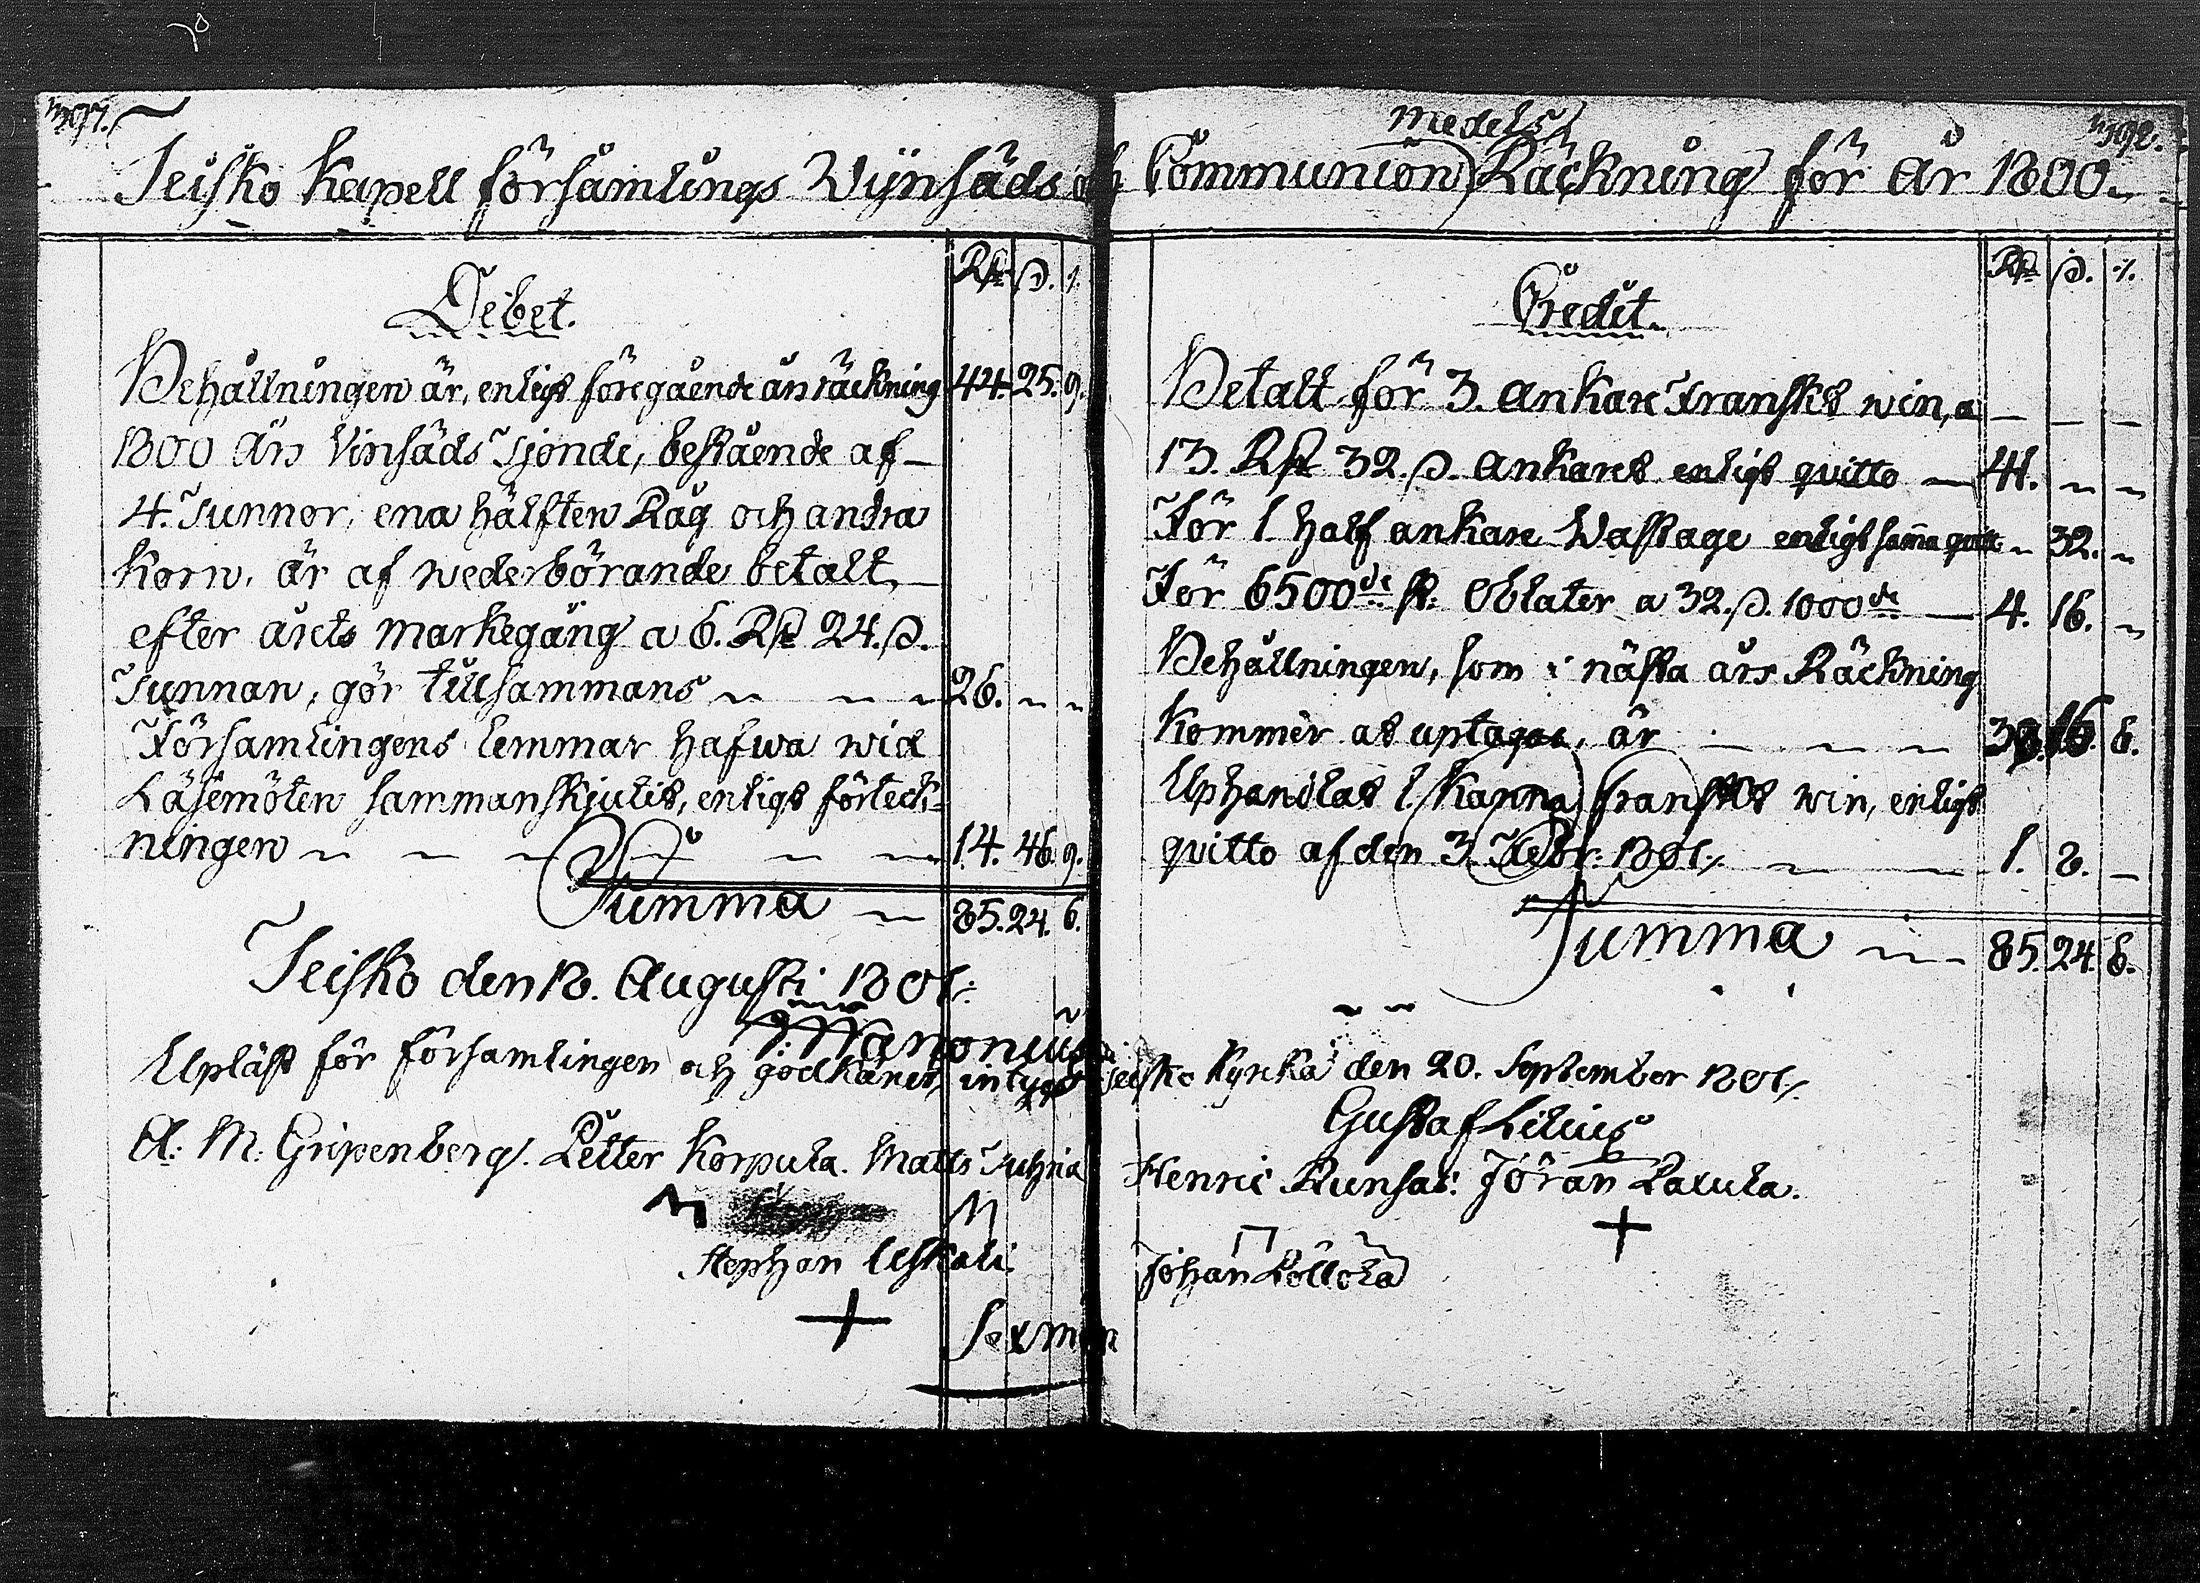 Teisko Kapell församlings Wijnsäds och Communion Medels Räckning för år 1800.
Debet.
Rdr ß. rst.
Behållningen är, enligt föregående års räckning 44. 25. 9.
1800 års Vinsäds Tjonde, bestående af
4. Tunnor, ena hälften Råg och andra
Korn, är af wederbörande betalt,
efter årets markegång a 6. Rdr 24. ß.
Tunnan, gör tillsammans 26. " "
Församlingens lemmar hafwa wid
Läsemöten sammanskjutit, enligt förteck-
ningen 14. 46. 9.
Summa 85. 24. 6.
Teisko den 18. Augusti 1801.
Upläst för församlingen och godkänet, intygar
A: M: Gripenberg. Petter Korpula. Matts
Stephan Uskali
Sexmän
Credit.
Rdr ß. rst.
Betalt för 3. Ankare Franskt win, a
13. Rdr 32. ß. Ankaret enligt quitto 41. " "
För 1. half ankare Wastage enligt samma quitt " 32. "
För 6500de st. Oblater a 32. ß. 1000de 4. 16. "
Behållningen, som i nästa års Räckning
Kommer at uptagas, är 38. 16. 6.
Uphandlat 1. Kanna franskt win, enligt
quitto af den 3. Febr: 1801. 1. 8. —
Summa 85. 24. 6.
Teisko Kyrka den 20. September 1801.
Gustaf Lilius
Henric Runsas. Jöran
Johan